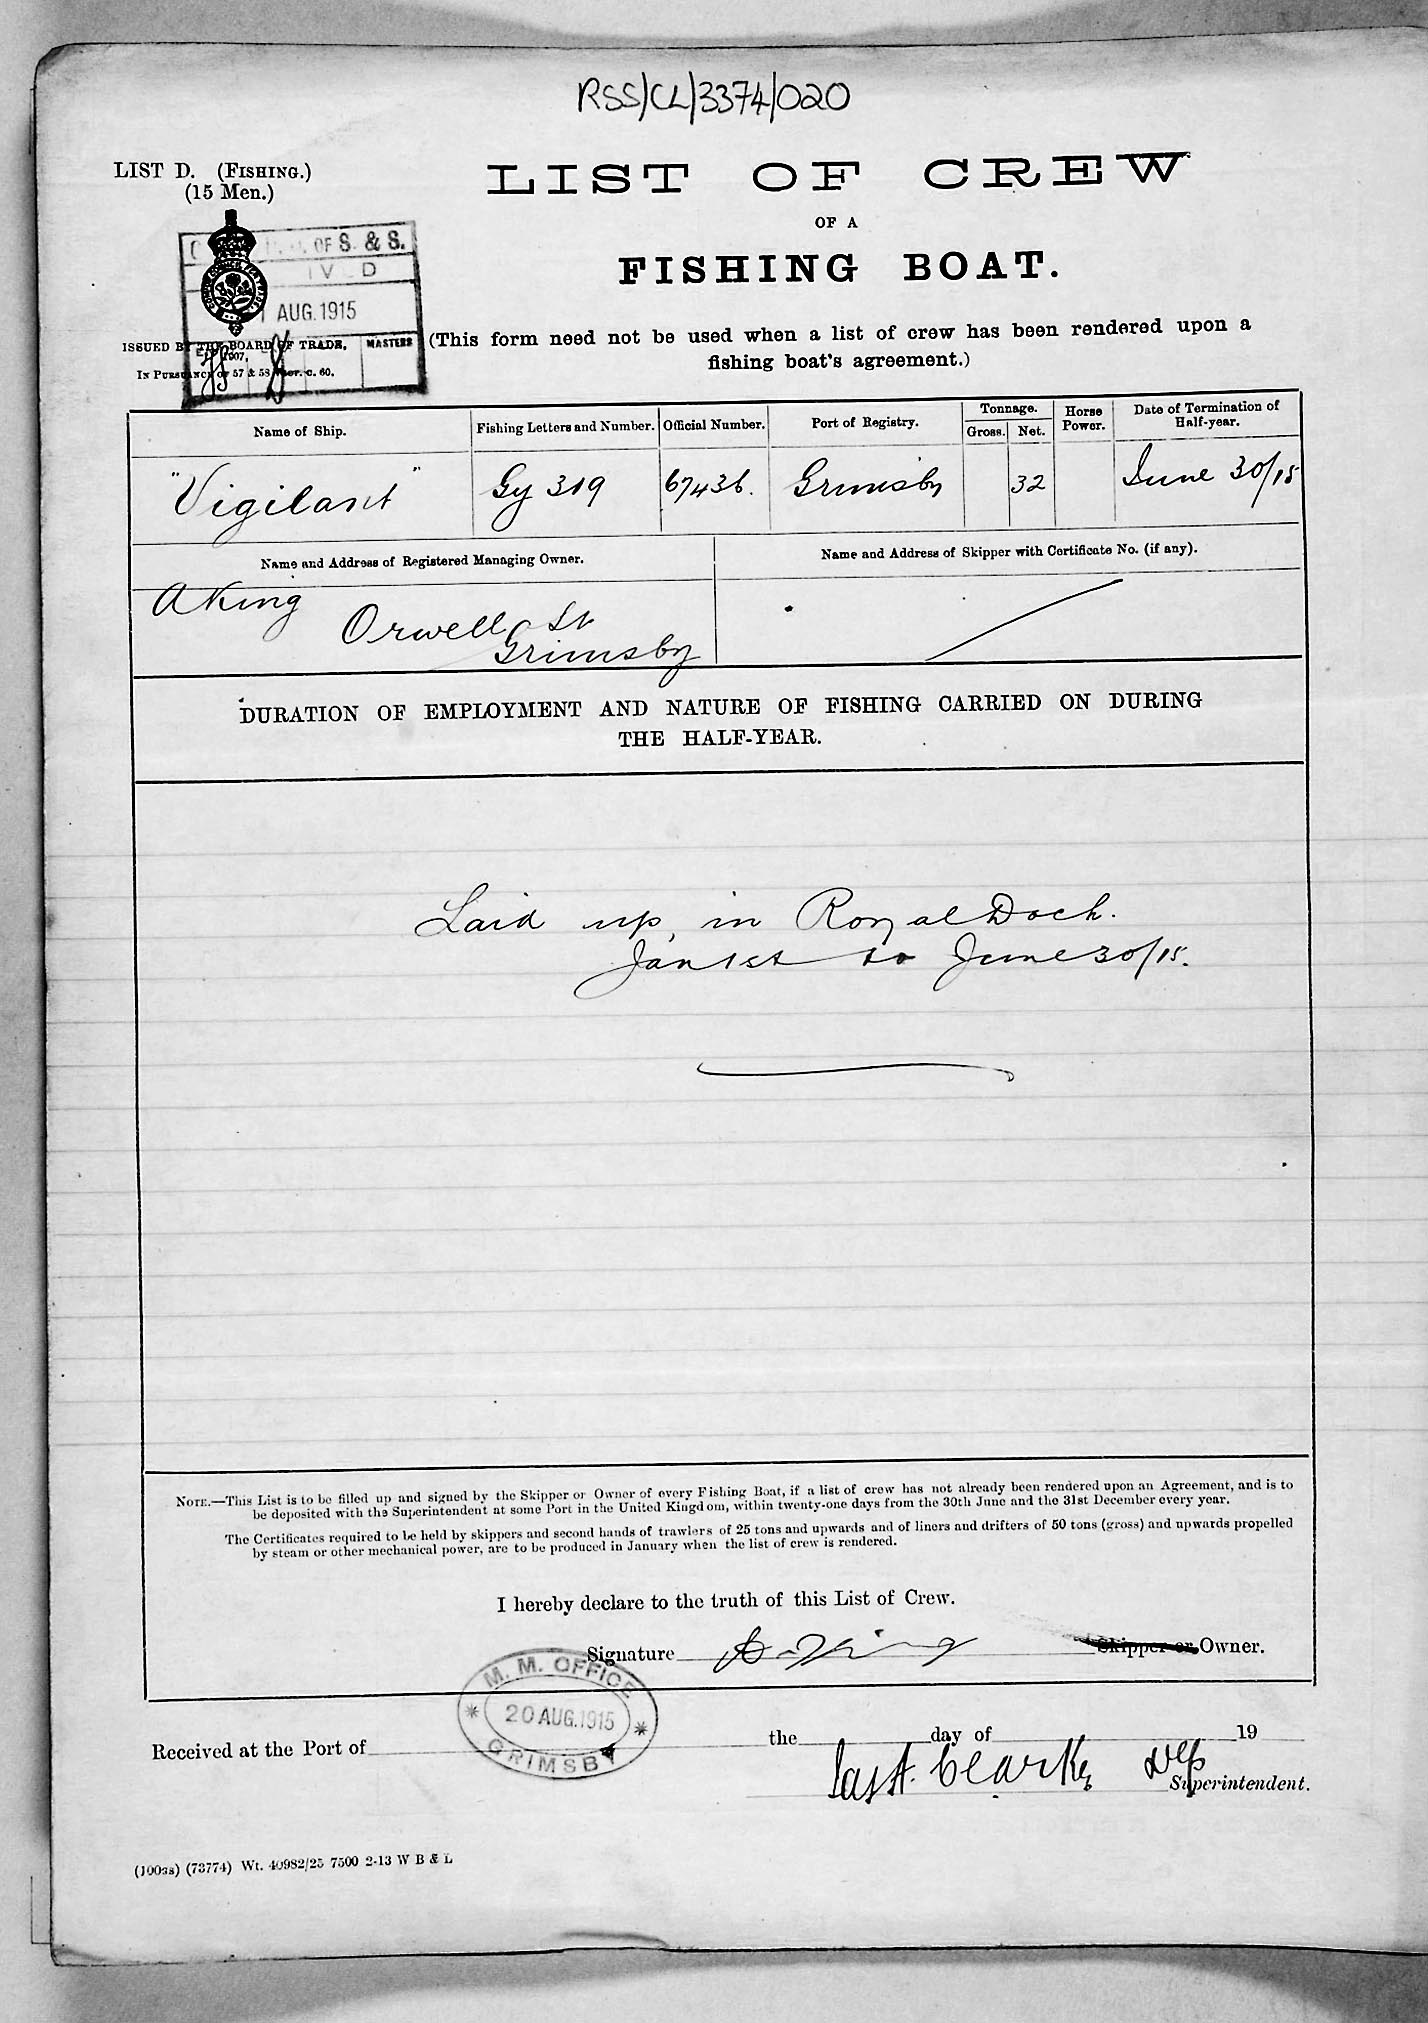 RSS/CL/3374/020
LIST D. (FISHING.)
(15 Men.)
LIST OF CREW
OF A
FISHING BOAT.
OF S. & S.
AUG. 1915
MASTERS
ISSUED BY THE BOARD OF TRADE,
IN PURSUANCE OF 57 & 58 VICT. C. 60.
(This form need not be used when a list of crew has been rendered upon a
fishing boat's agreement.)
Name of Ship. Fishing Letters and Number. Official Number. Port of Registry. Tonnage. Gross. Net. Horse Power. Date of Termination of Half-year.
"Vigilant" Gy 319 67436. Grimsby 32 June 30/15
Name and Address of Registered Managing Owner. Name and Address of Skipper with Certificate No. (if any).
A King
Orwell St
Grimsby
DURATION OF EMPLOYMENT AND NATURE OF FISHING CARRIED ON DURING
THE HALF-YEAR.
Laid up, in Royal Dock.
Jan 1st to June 30/15.
NOTE.—This List is to be filled up and signed by the Skipper or Owner of every Fishing Boat, if a list of crew has not already been rendered upon an Agreement, and is to
be deposited with the Superintendent at some Port in the United Kingdom, within twenty-one days from the 30th June and the 31st December every year.
The Certificates required to be held by skippers and second hands of trawlers of 25 tons and upwards and of liners and drifters of 50 tons (gross) and upwards propelled
by steam or other mechanical power, are to be produced in January when the list of crew is rendered.
I hereby declare to the truth of this List of Crew.
Signature A. King Skipper or Owner.
M. M. OFFICE
20 AUG. 1915
GRIMSBY
Received at the Port of the day of 19
Jas A. Clarke Dep
Superintendent.
(73774) Wt. 40982/25 7500 2-13 W B & L